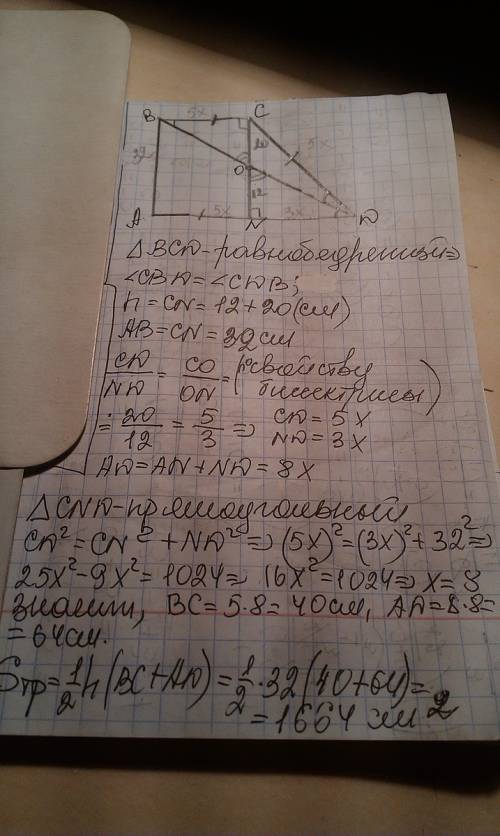 B 5x C
32 20 5x
O
12
A 5x N 3x D
△BCD-равнобедренный⇒
∠CBD=∠CDB;
h=CN=12+20(см)
AB=CN=32см
CD/ND = CO/ON = (по свойству биссектрисы)
= 20/12 = 5/3 ⇒ CD=5x
ND=3x
AD=AN+ND=8x
△CND-прямоугольный
CD²=CN²+ND²⇒(5x)²=(3x)²+32²⇒
25x²-9x²=1024⇒16x²=1024⇒x=8
Значит, BC=5·8=40см, AD=8·8=
=64см.
Sтр=1/2h(BC+AD)=1/2·32(40+64)=
=1664 см²